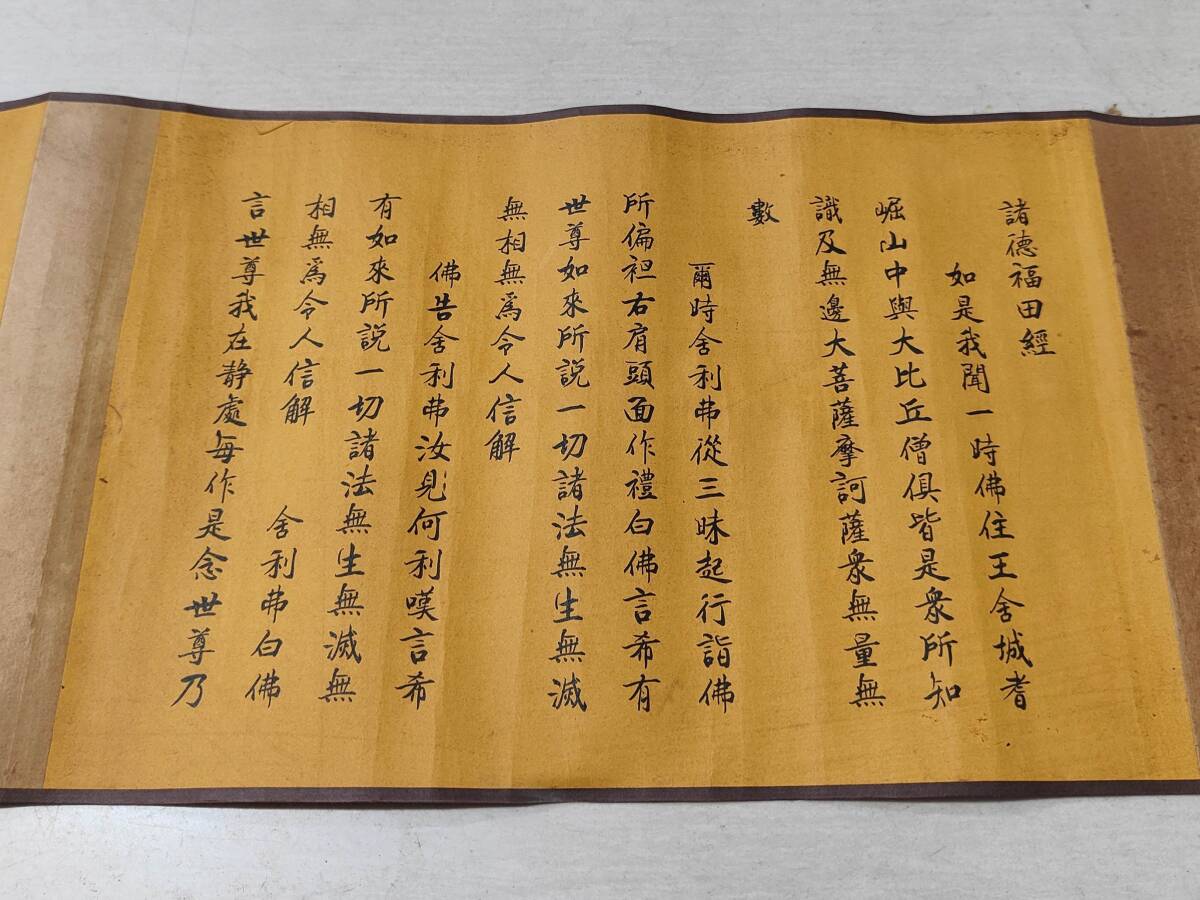 諸德福田經
如是我聞一時佛住王舍城耆
崛山中與大比丘僧俱皆是衆所知
識及無邊大菩薩摩訶薩衆無量無
數
爾時舍利弗從三昧起行詣佛
所偏袒右肩頭面作禮白佛言希有
世尊如來所説一切諸法無生無滅
無相無爲令人信解
佛告舍利弗汝見何利嘆言希
有如來所説一切諸法無生無滅無
相無爲令人信解　舍利弗白佛
言世尊我在静處每作是念世尊乃